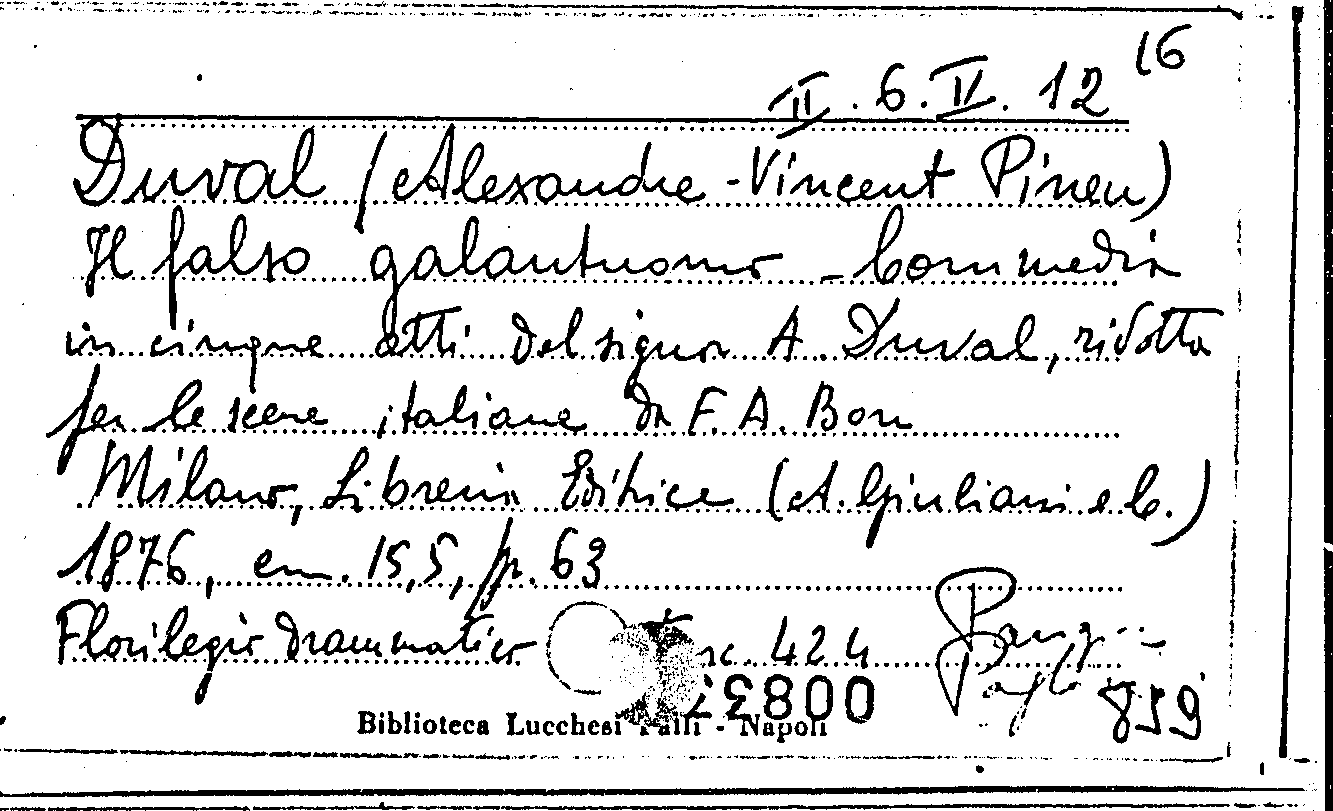 II. 6. IV. 12 16
Duval (Alexandre-Vincent Pineu)
Il falso galantuomo - Commedia
in cinque atti del signor A. Duval, ridotta
per le scene italiane da F. A. Bon
Milano, Libreria Editrice (A. Giuliani e C.)
1876, cm. 15,5, pp. 63
Florilegio drammatico fasc. 424
859
Biblioteca Lucchesi Palli - Napoli